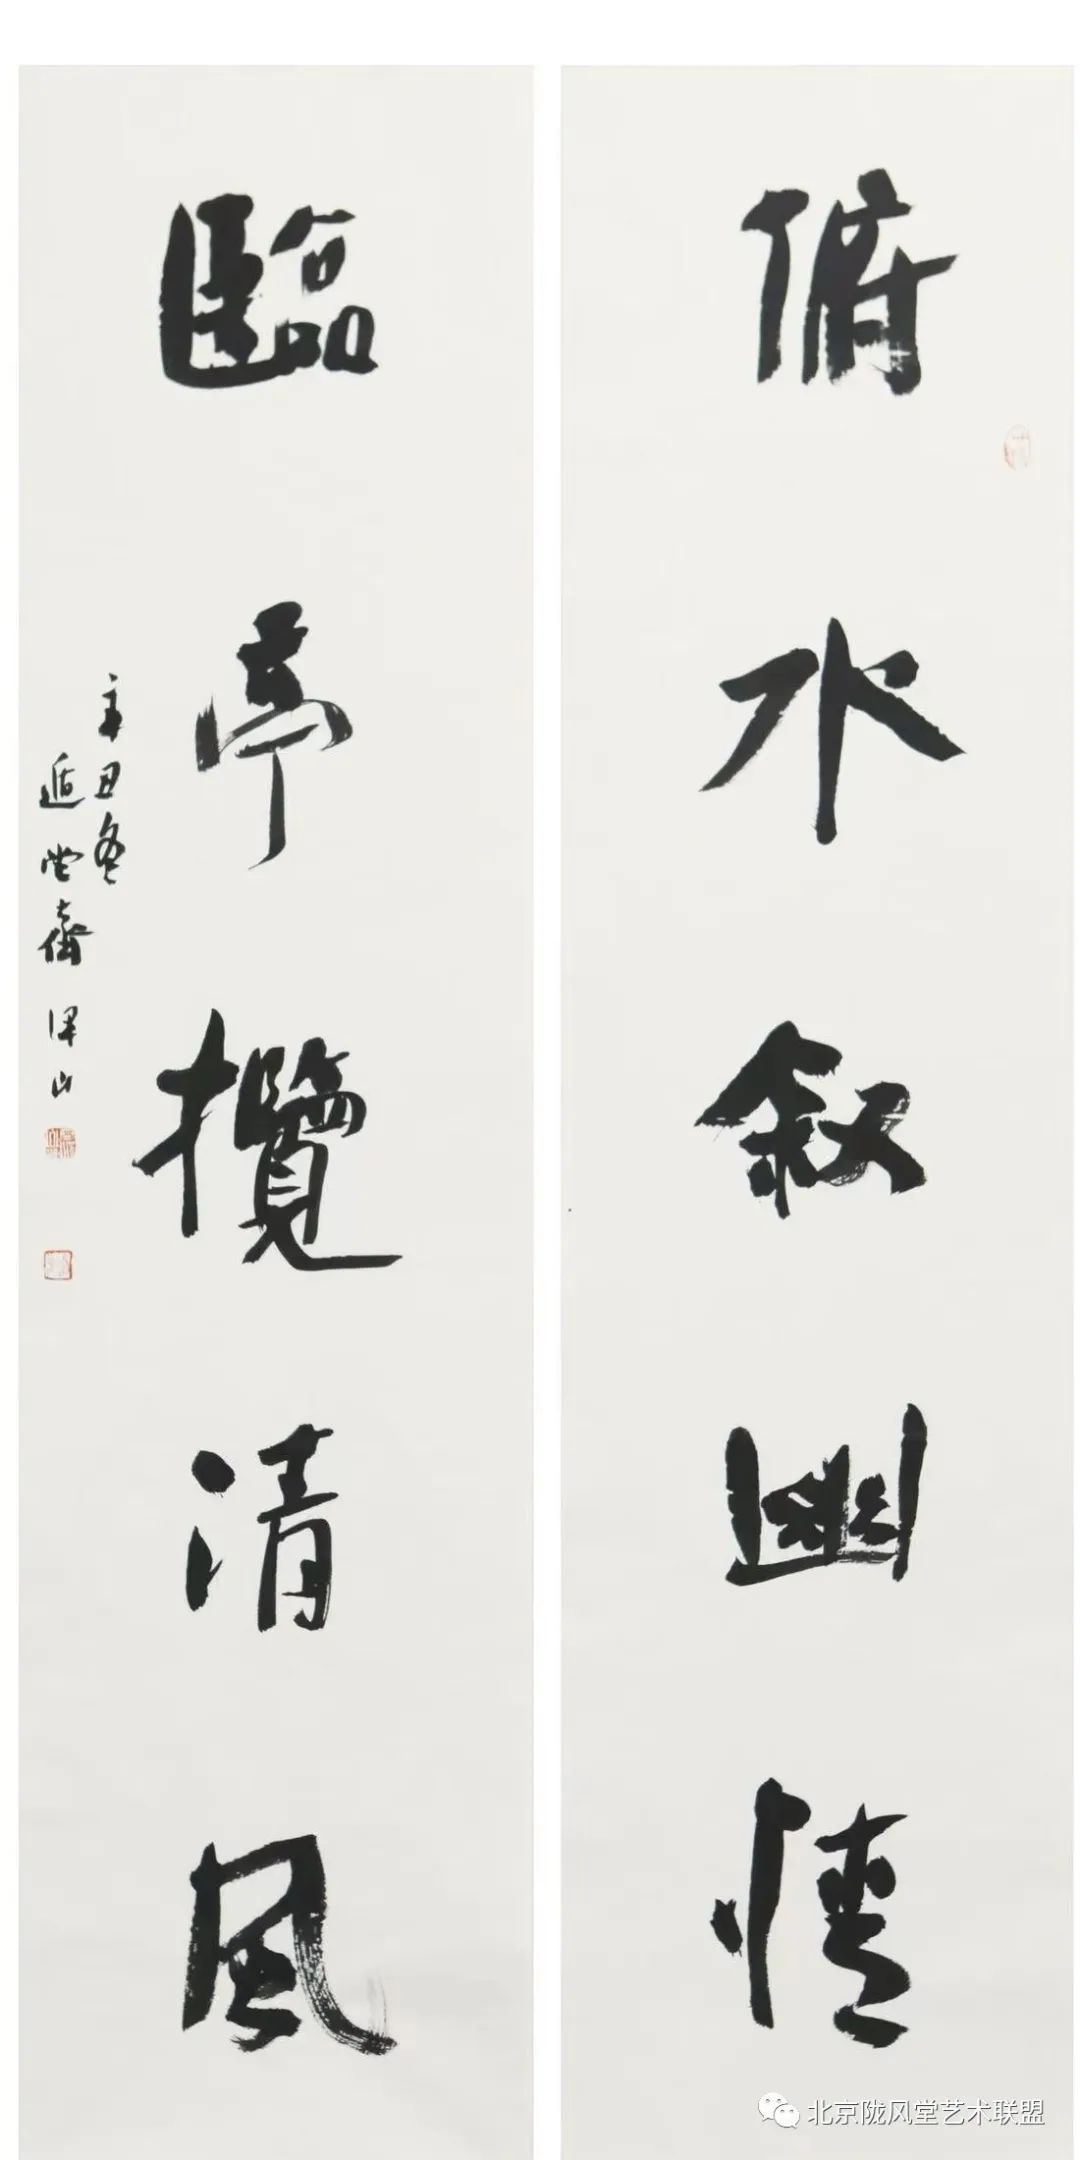 俯水叙幽情
臨亭攬清風
辛丑冬
遁堂齋 澤山
北京陇风堂艺术联盟